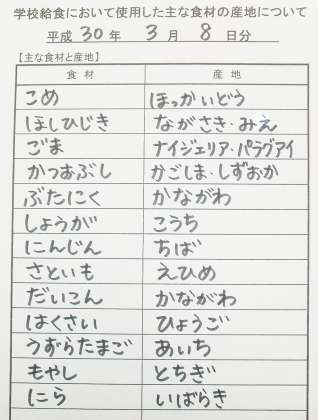 学校給食において使用した主な食材の産地について
平成 30 年 3 月 8 日分
【主な食材と産地】
食 材 産 地
こめ ほっかいどう
ほしひじき ながさき・みえ
ごま ナイジェリア・パラグアイ
かつおぶし かごしま・しずおか
ぶたにく かながわ
しょうが こうち
にんじん ちば
さといも えひめ
だいこん かながわ
はくさい ひょうご
うずらたまご あいち
もやし とちぎ
にら いばらき